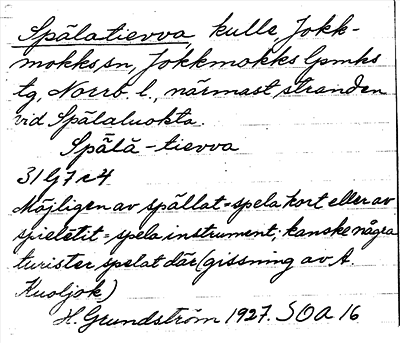 Spälatievva, kulle, Jokk-
mokks sn, Jokkmokks lpmks
tg, Norrb. l., närmast stranden
vid Spälaluokta.
Spälä-tievva
31 G 7 c 4
Möjligen av spällat = spela kort eller av
spieletit = spela instrument, kanske några
turister spelat där (gissning av A.
Kuoljok)
H. Grundström 1927. SOA 16